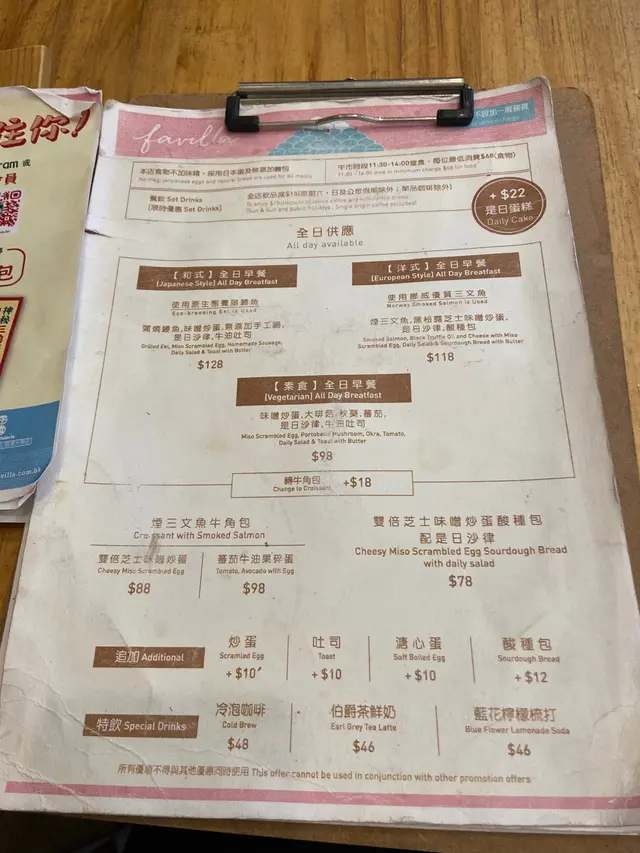 往你!
ram 或
員
包
villa.com.hk
favilla
不設加一服務費
本店食物不加味精、採用日本蛋及無添加麵包
No msg, Japanese eggs and natural bread are used for all meals
午市時段11:30-14:00堂食,每位最低消費$68(食物)
餐飲 Set Drinks
(限時優惠 Set Drinks)
+ $22
是日蛋糕
Daily Cake
全日供應
All day available
【和式】全日早餐
[Japanese Style] All Day Breakfast
使用原生態養殖鰻魚
Eco-breeding Eel is Used
蒲燒鰻魚,味噌炒蛋,無添加手工腸,
是日沙律,牛油吐司
Grilled Eel, Miso Scrambled Egg, Homemade Sausage,
Daily Salad & Toast with Butter
$128
【洋式】全日早餐
[European Style] All Day Breakfast
使用挪威優質三文魚
Norway Smoked Salmon is Used
煙三文魚,黑松露芝士味噌炒蛋,
是日沙律,酸種包
Smoked Salmon, Black Truffle Oil and Cheese with Miso
Scrambled Egg, Daily Salad & Sourdough Bread with Butter
$118
【素食】全日早餐
[Vegetarian] All Day Breakfast
味噌炒蛋,大啡菇,秋葵,蕃茄,
是日沙律,牛油吐司
Miso Scrambled Egg, Portobello Mushroom, Okra, Tomato,
Daily Salad & Toast with Butter
$98
轉牛角包
Change to Croissant
+$18
煙三文魚牛角包
Croissant with Smoked Salmon
雙倍芝士味噌炒蛋
Cheesy Miso Scrambled Egg
$88
蕃茄牛油果碎蛋
Tomato, Avocado with Egg
$98
雙倍芝士味噌炒蛋酸種包
配是日沙律
Cheesy Miso Scrambled Egg Sourdough Bread
with daily salad
$78
追加 Additional
炒蛋
Scrambled Egg
+ $10
吐司
Toast
+ $10
溏心蛋
Soft Boiled Egg
+ $10
酸種包
Sourdough Bread
+ $12
特飲 Special Drinks
冷泡咖啡
Cold Brew
$48
伯爵茶鮮奶
Earl Grey Tea Latte
$46
藍花檸檬梳打
Blue Flower Lemonade Soda
$46
所有優惠不得與其他優惠同時使用 This offer cannot be used in conjunction with other promotion offers